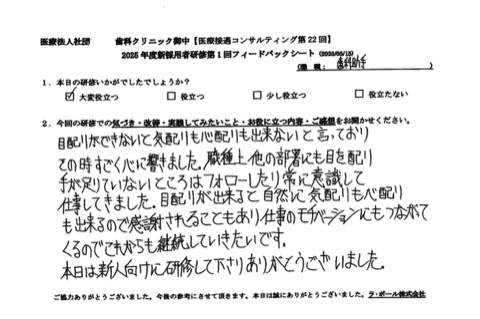 医療法人社団 歯科クリニック御中【医療接遇コンサルティング第22回】
2025年度新採用者研修第1回フィードバックシート (2025/05/15)
(職種: 歯科助手 )
1．本日の研修いかがでしたでしょうか？
☑ 大変役立つ □ 役立つ □ 少し役立つ □ 役立たない
2．今回の研修での気づき・改善・実践してみたいこと・お役に立つ内容・ご感想をお聞かせください。
目配りができないと気配りも心配りも出来ないと言っており
その時すごく心に響きました。職種上、他の部署にも目を配り
手が足りていないところはフォローしたり常に意識して
仕事してきました。目配りが出来ると自然に気配りも心配り
も出来るので感謝されることもあり仕事のモチベーションにもつながて
くるのでこれからも継続していきたいです。
本日は新人向けに研修して下さりありがとうございました。
ご協力ありがとうございました。今後の参考にさせて頂きます。本日は誠にありがとうございました。ラ・ポール株式会社